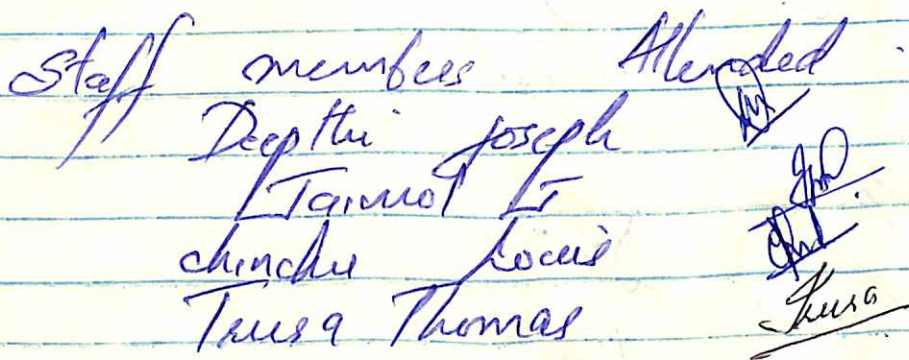 Staff members Attended.
Deepthi Joseph
Taimol LT
chindhu Louis
Trusa Thomas Trusa